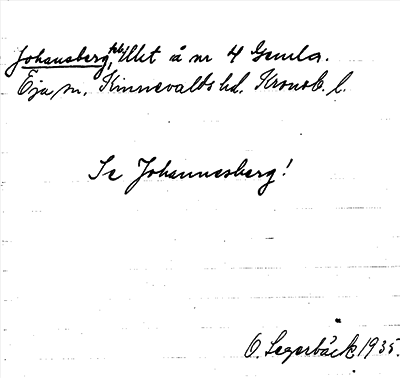 Johansberg, tpl. Ullet å nr 4 Gemla.
Öja sn. Kinnevalds hd. Kronob. l.
Se Johannesberg!
O. Segerbäck 1935.